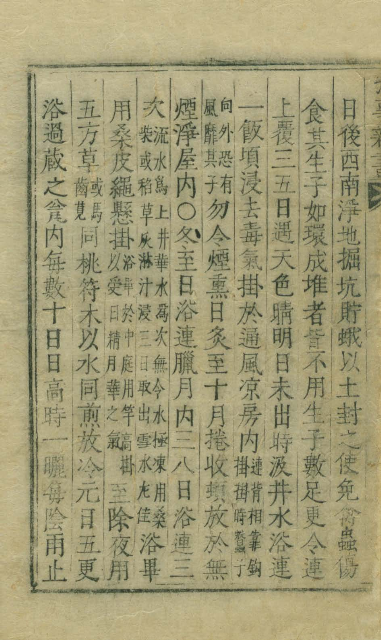 日後西南淨地掘坑貯蛾以土封之使免禽蟲傷
食其生子如環成堆者皆不用生子數足更令連
上覆三五日遇天色晴明日未出時汲井水浴連
一飯頃浸去毒氣掛於通風凉房内連背相靠鈎掛掛時蠶子
向外恐有風靡其子勿令煙熏日炙至十月捲收頓放於無
煙淨屋内〇冬至日浴連臘月内三八日浴連三
次流水爲上井華水爲次無令水極凍用桑柴或稻草灰淋汁浸三日取出雪水尤佳浴畢
用桑皮繩懸掛浴畢於中庭用竿高掛以受日精月華之氣至除夜用
五方草或馬齒莧同桃符木以水同煎放冷元日五更
浴過蔵之瓮内每數十日日高時一曬每陰雨止